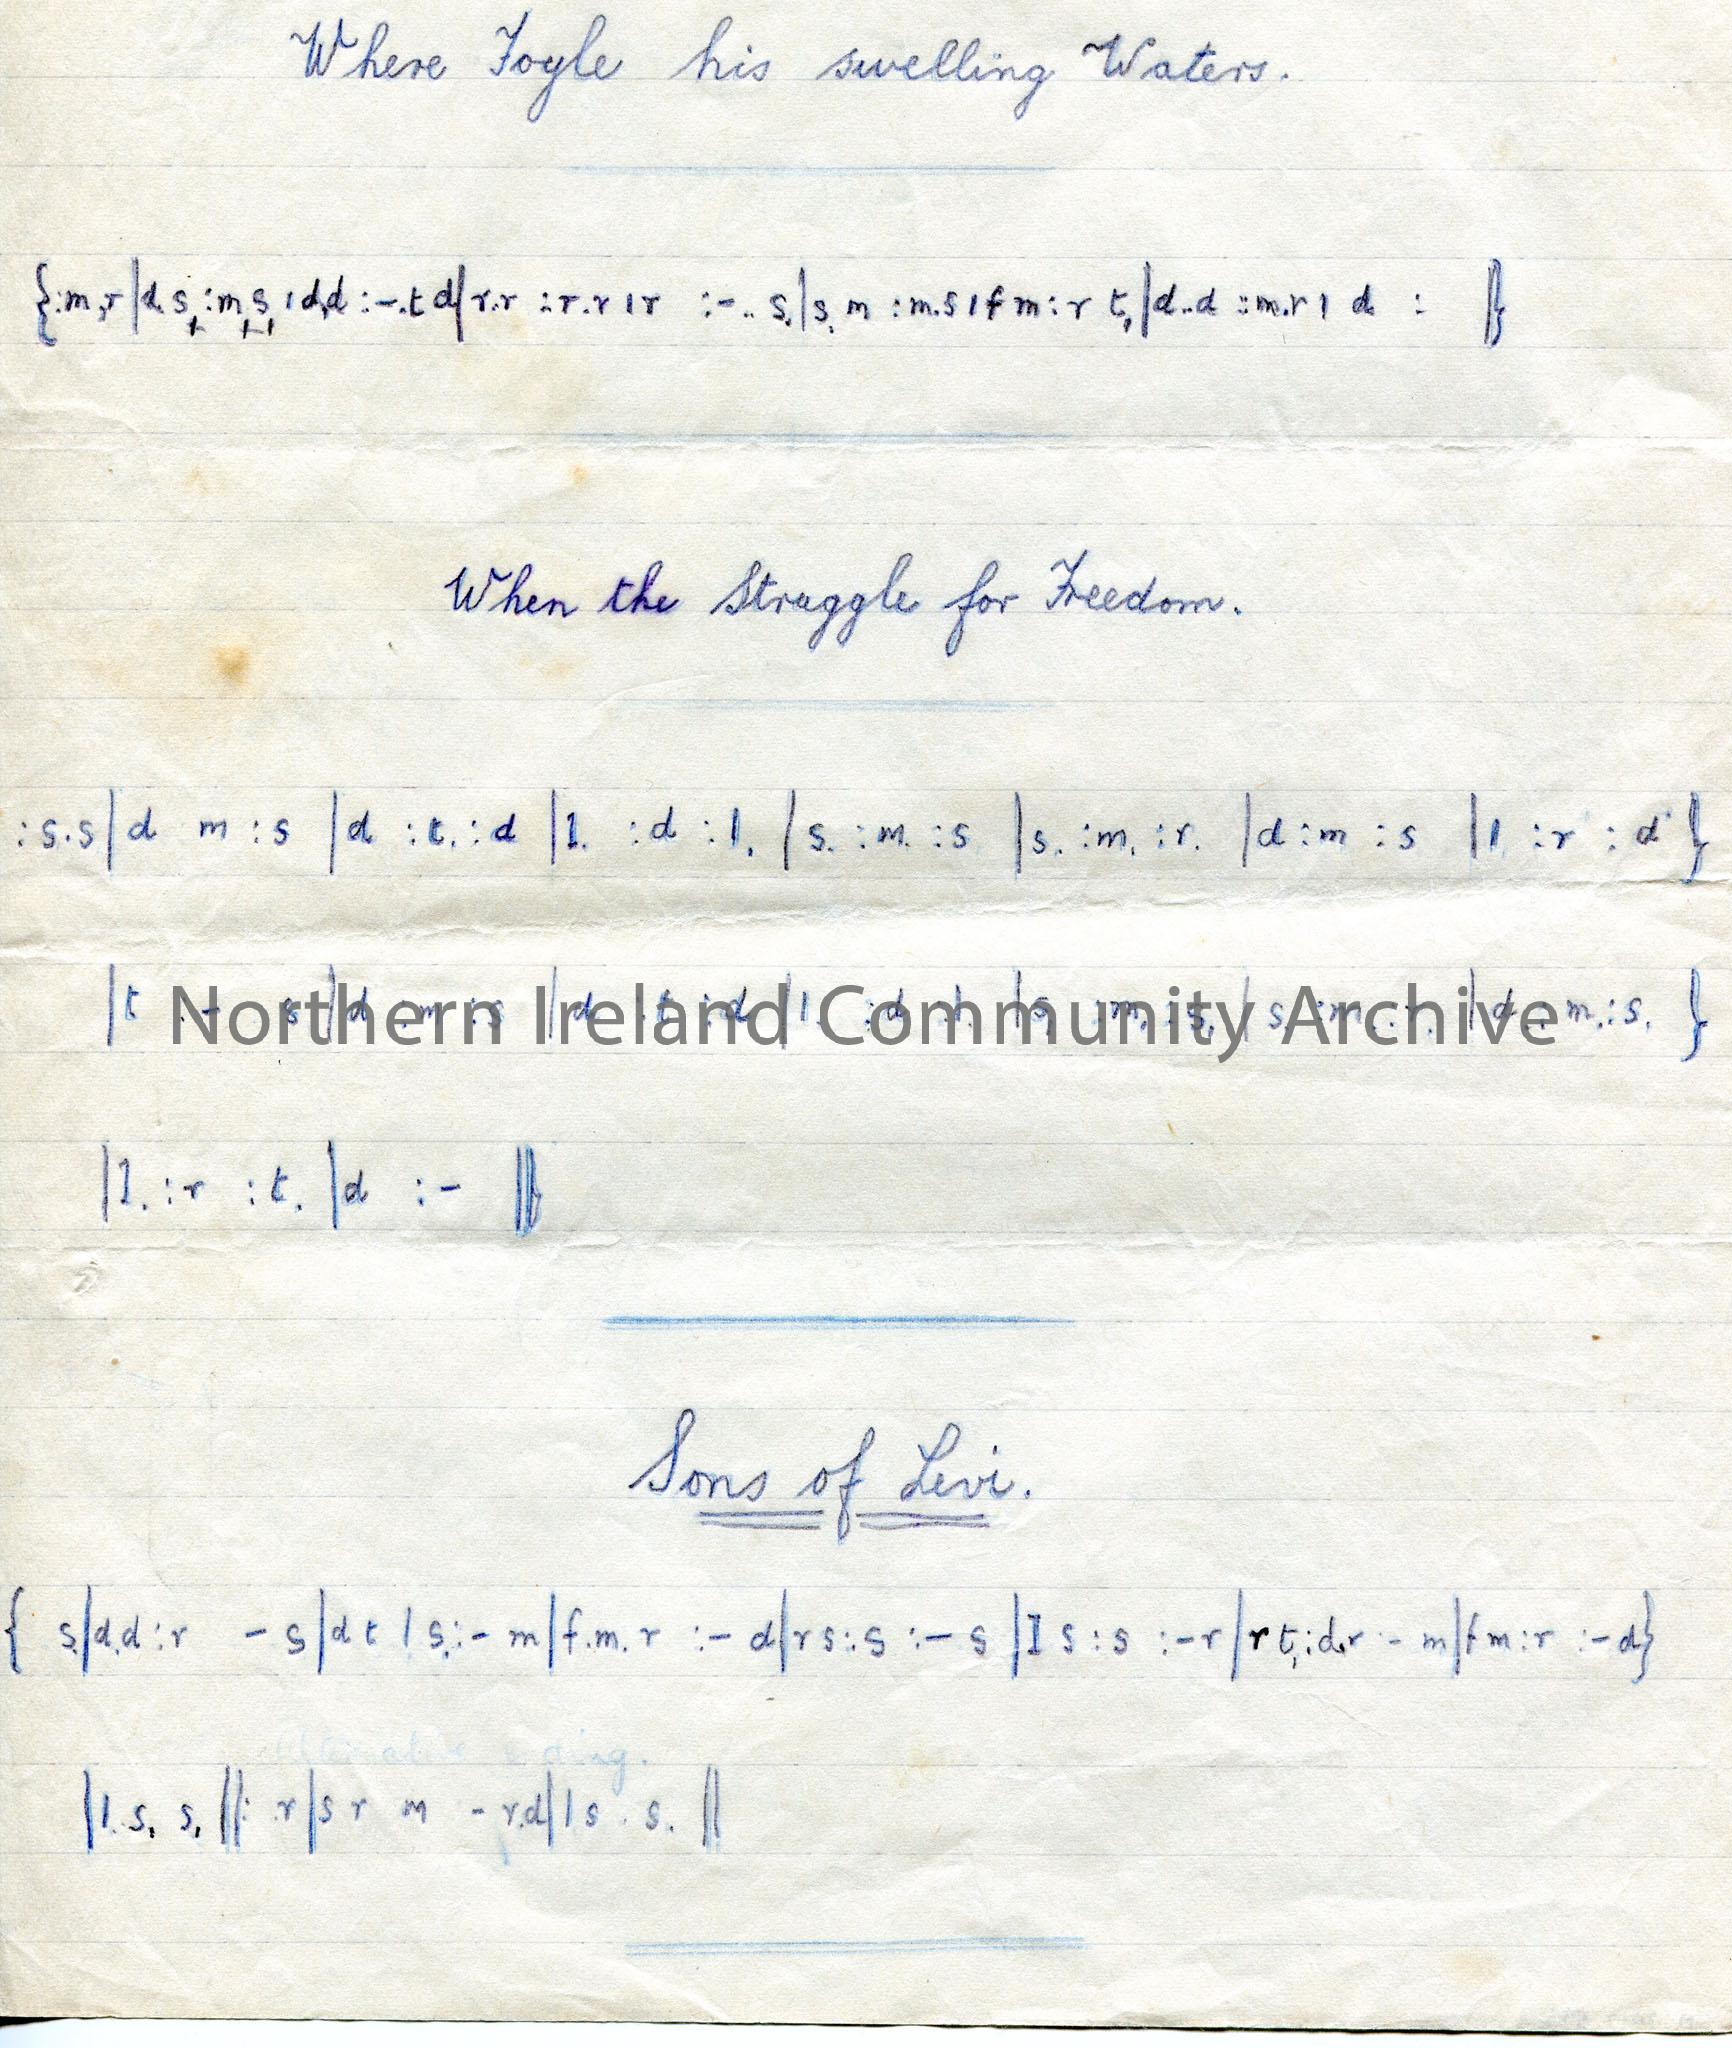 Where Foyle his swelling Waters.
{:m,r|d.s,:m,s,|d,d:-.t d|r..r :r.r|r :-.. s,|s, m :m.s|f m:r t,|d..d :m.r| d : ||}
When the Struggle for Freedom.
:s.s|d m:s |d :t. :d |l. :d :l. |s. :m. :s |s. :m. :r. |d:m :s |l :r :d' }
|t :- s|d :m :s |d :t :d |l. :d :l. |s, :m. :s, |s, :m. :r. |d :m.:s. }
|l. :r :t. |d :- ||}
Sons of Levi.
{ s,|d.d:r - s|d t | s,:- m|f.m. r :- d|r s::s :- s |l s:s :-r|r t,:d.r - m|f m:r :-d}
|l. s, s, ||: r|s r m - r.d|l s . s. ||